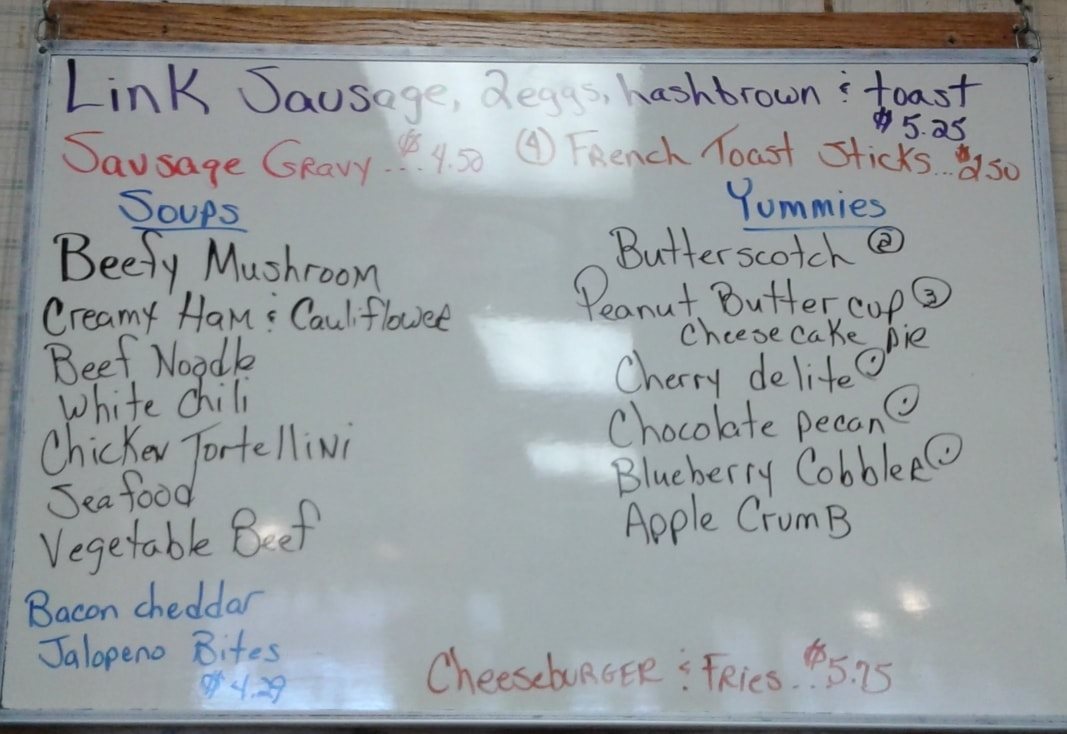 Link Sausage, 2eggs, hashbrown & toast
$5.25
Sausage Gravy...$4.50
(4) French Toast Sticks...$2.50
Soups
Beefy Mushroom
Creamy Ham & Cauliflower
Beef Noodle
White Chili
Chicken Tortellini
Seafood
Vegetable Beef
Bacon cheddar
Jalopeno Bites
$4.29
Yummies
Butterscotch ②
Peanut Butter cup ③
cheese cake pie
Cherry delite
Chocolate pecan
Blueberry Cobbler
Apple CrumB
Cheeseburger & Fries...$5.75